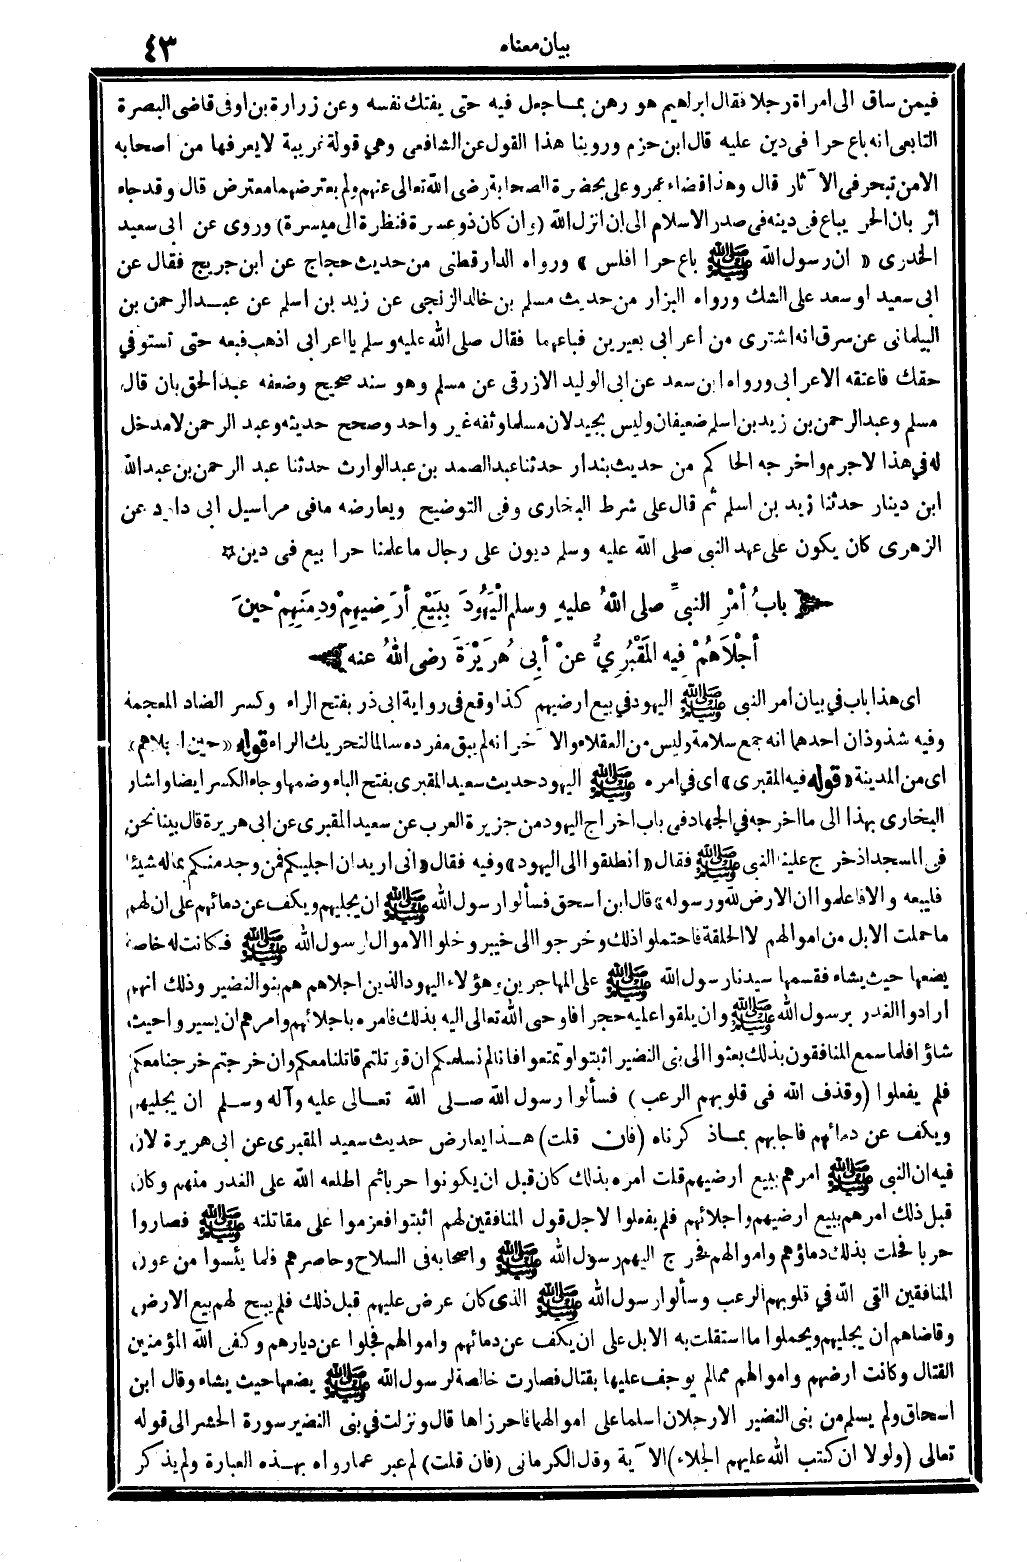 بيان معناه ٤٣
فيمن ساق الى امرأة رجلا فقال ابراهيم هو رهن بمـا جعل فيه حتى يفتك نفسه وعن زرارة بن اوفى قاضى البصرة
التابعى انه باع حرا فى دين عليه قال ابن حزم وروينا هذا القول عن الشافعى وهي قولة غريبة لا يعرفها من اصحابه
الا من تبحر فى الآثار قال وهذا قضاء عمر وعلى بحضرة الصحابة رضى الله تعالى عنهم ولم يعترضهما معترض قال وقد جاء
اثر بان الحر يباع فى دينه فى صدر الاسلام الى ان انزل الله (وان كان ذو عسرة فنظرة الى ميسرة) وروى عن ابى سعيد
الخدرى « ان رسول الله ﷺ باع حرا افلس » ورواه الدارقطنى من حديث حجاج عن ابن جريج فقال عن
ابى سعيد او سعد على الشك ورواه البزار من حديث مسلم بن خالد الزنجى عن زيد بن اسلم عن عبـد الرحمن بن
البيلمانى عن سرق انه اشترى من اعرابى بعيرين فباعهما فقال صلى الله عليه وسلم يا اعرابى اذهب فبعه حتى تستوفي
حقك فاعتقه الاعرابى ورواه ابن سعد عن ابى الوليد الازرقى عن مسلم وهو سند صحيح وضعفه عبد الحق بان قال
مسلم وعبد الرحمن بن زيد بن اسلم ضعيفان وليس بجيد لان مسلما وثقه غير واحد وصحح حديثه وعبد الرحمن لا مدخل
له في هذا لاجرم واخرجه الحاكم من حديث بندار حدثنا عبد الصمد بن عبد الوارث حدثنا عبد الرحمن بن عبد الله
ابن دينار حدثنا زيد بن اسلم ثم قال على شرط البخارى وفى التوضيح ويعارضه ما فى مراسيل ابى داود عن
الزهرى كان يكون على عهد النبى صلى الله عليه وسلم ديون على رجال ما علمنا حرا بيع فى دين ☆
باب أمْرِ النبيِّ صلى اللهُ عليهِ وسلم الْيَهُودَ بِبَيْعِ أرَضِيهِمْ ودِمَنِهِمْ حينَ
أجْلاَهُمْ فِيهِ المَقْبُرِيُّ عنْ أبِى هُرَيْرَةَ رضى اللهُ عنه
اى هذا باب في بيان امر النبى ﷺ اليهود في بيع ارضيهم كذا وقع فى رواية ابى ذر بفتح الراء وكسر الضاد المعجمة
وفيه شذوذان احدهما انه جمع سلامة وليس من العقلاء والآخر انه لم يبق مفرده سالما لتحريك الراء قوله «حين اجلاهم»
اى من المدينة «قوله فيه المقبرى» اى في امره ﷺ اليهود حديث سعيد المقبرى بفتح الباء وضمها وجاء الكسر ايضا واشار
البخارى بهذا الى ما اخرجه في الجهاد فى باب اخراج اليهود من جزيرة العرب عن سعيد المقبرى عن ابى هريرة قال بينا نحن
فى المسجد اذ خرج علينا النبى ﷺ فقال «انطلقوا الى اليهود» وفيه فقال «انى اريد ان اجليكم فمن وجد منكم بماله شيئا
فليبعه والا فاعلموا ان الارض لله ورسوله» قال ابن اسحق فسألوا رسول الله ﷺ ان يجليهم ويكف عن دمائهم على ان لهم
ما حملت الابل من اموالهم لا الحلقة فاحتملوا ذلك وخرجوا الى خيبر وخلوا الاموال لرسول الله ﷺ فكانت له خاصة
يضعها حيث يشاء فقسمها سيدنا رسول الله ﷺ على المهاجرين وهؤلاء اليهود الذين اجلاهم هم بنو النضير وذلك انهم
ارادوا الغدر برسول الله ﷺ وان يلقوا عليه حجرا فاوحى الله تعالى اليه بذلك فامره باجلائهم وامرهم ان يسيروا حيث
شاؤا فلما سمع المنافقون بذلك بعثوا الى بنى النضير اثبتوا وتمتعوا فانا لم نسلمكم ان قوتلتم قاتلنا معكم وان خرجتم خرجنا معكم
فلم يفعلوا (وقذف الله فى قلوبهم الرعب) فسألوا رسول الله صـلى الله تعـالى عليه وآله وسـلم ان يجليهم
ويكف عن دمائهم فاجابهم بمـا ذكرناه (فان قلت) هـذا يعارض حديث سعيد المقبرى عن ابى هريرة لان
فيه ان النبى ﷺ امرهم ببيع ارضيهم قلت امره بذلك كان قبل ان يكونوا حربا ثم اطلعه الله على الغدر منهم وكان
قبل ذلك امرهم ببيع ارضيهم واجلائهم فلم يفعلوا لاجل قول المنافقين لهم اثبتوا فعزموا على مقاتلته ﷺ فصاروا
حربا فحلت بذلك دماؤهم واموالهم فخرج اليهم رسول الله ﷺ واصحابه فى السلاح وحاصرهم فلما يئسوا من عون
المنافقين القى الله في قلوبهم الرعب وسألوا رسول الله ﷺ الذى كان عرض عليهم قبل ذلك فلم يبح لهم بيع الارض
وقاضاهم ان يجليهم ويحملوا ما استقلت به الابل على ان يكف عن دمائهم واموالهم فجلوا عن ديارهم وكفى الله المؤمنين
القتال وكانت ارضهم واموالهم مما لم يوجف عليها بقتال فصارت خالصة لرسول الله ﷺ يضعها حيث يشاء وقال ابن
اسحاق ولم يسلم من بنى النضير الا رجلان اسلما على اموالهما فاحرزاها قال ونزلت في بنى النضير سورة الحشر الى قوله
تعالى (ولولا ان كتب الله عليهم الجلاء) الآية وقال الكرمانى (فان قلت) لم عبر عما رواه بهـذه العبارة ولم يذكر